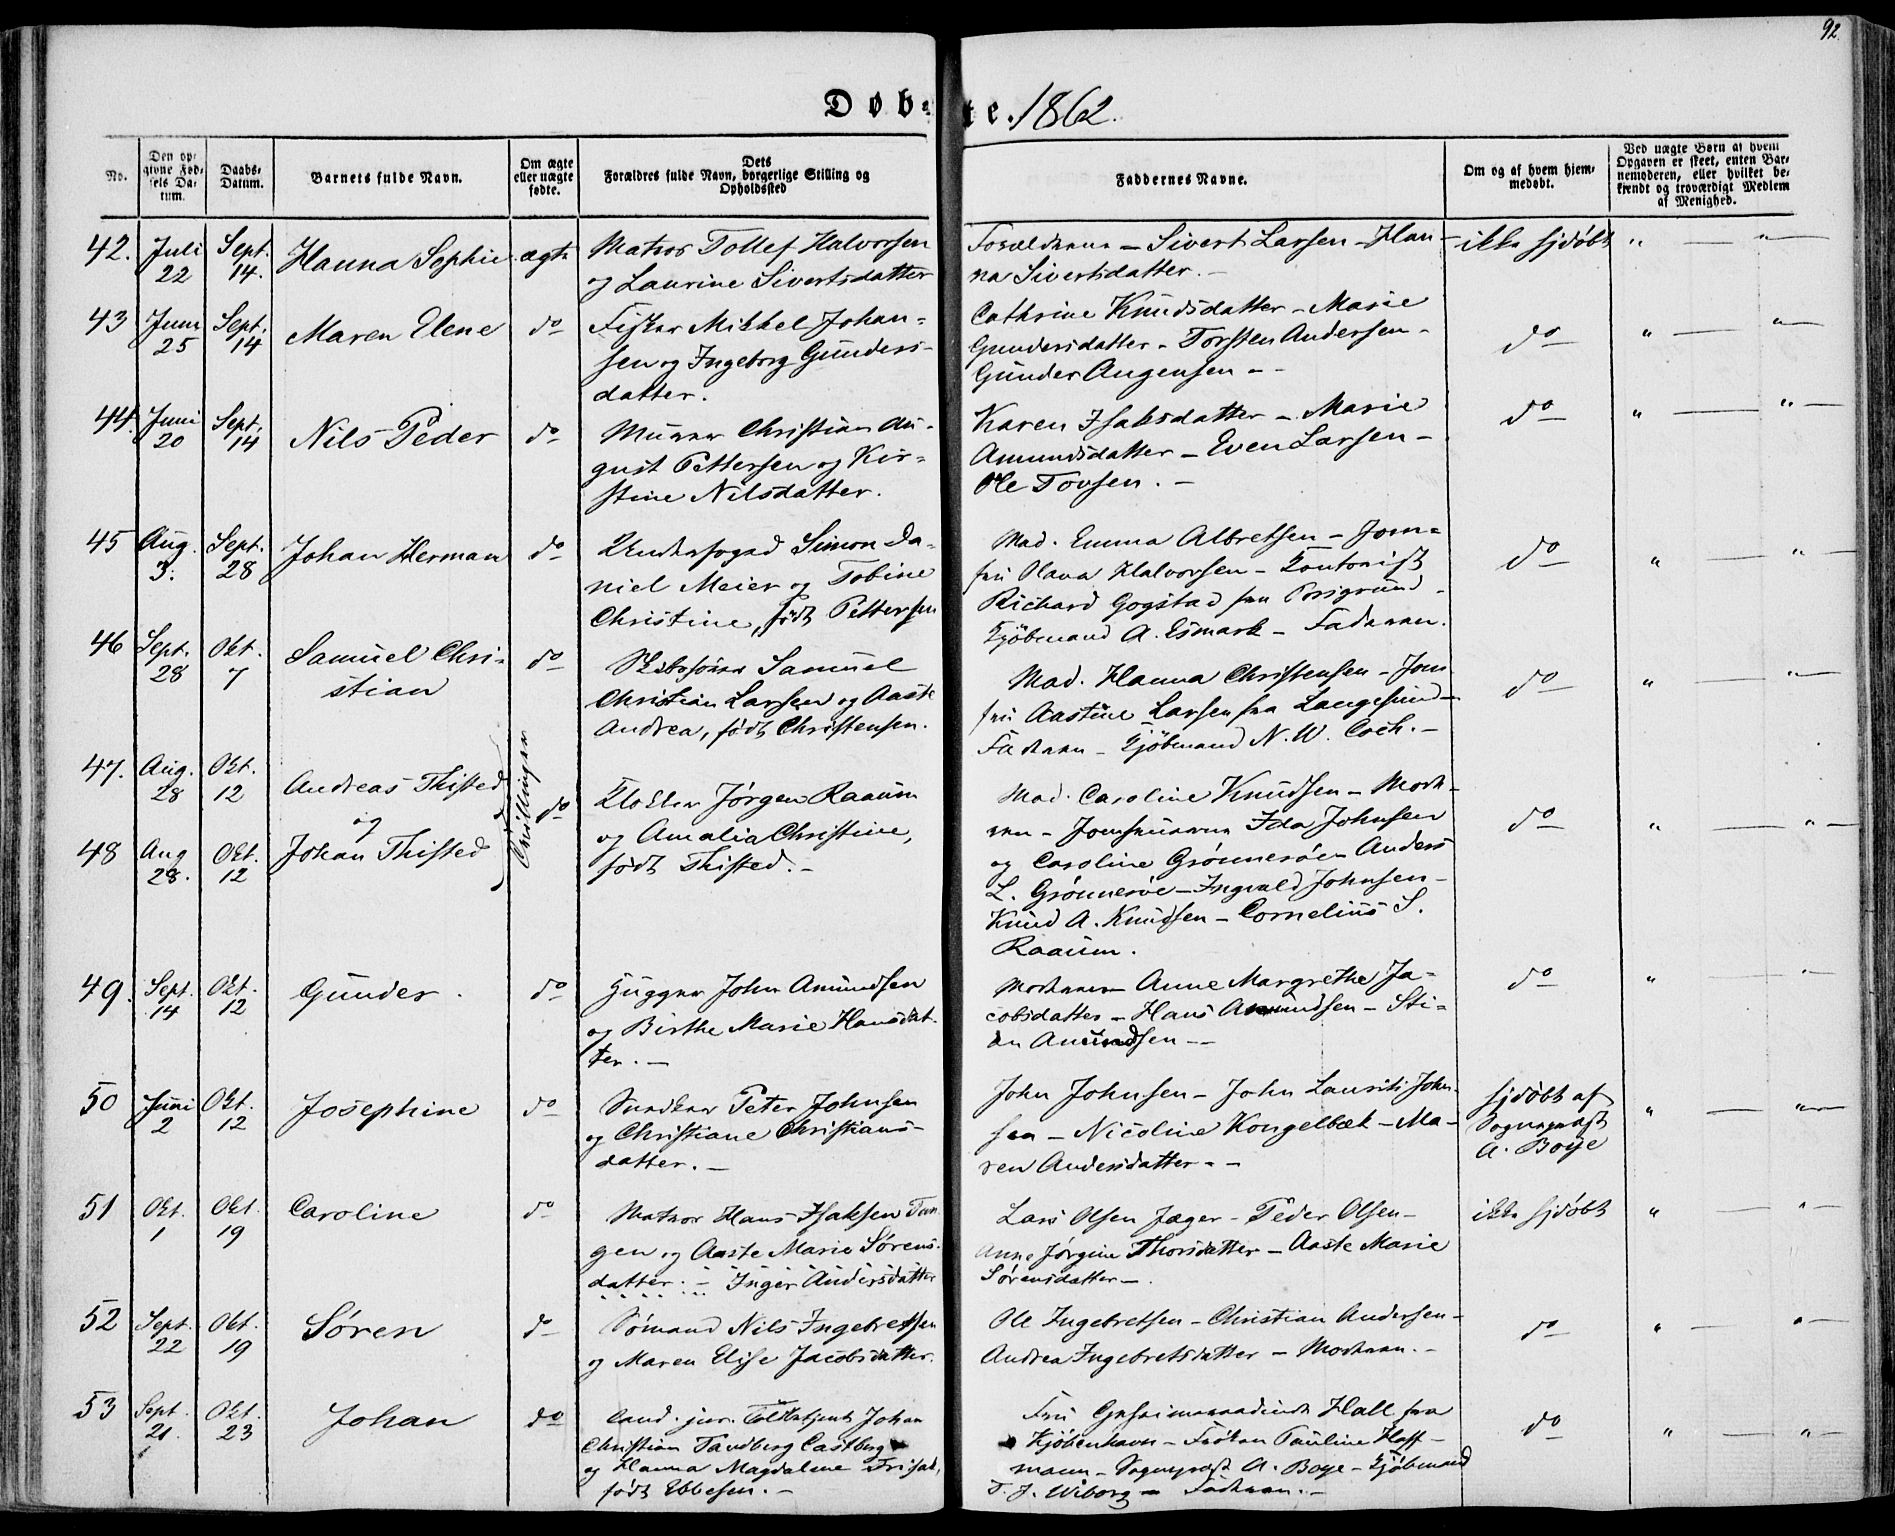 92.
Døbte. 1862.
No.
Den opgivne Fødsels Datum.
Daabs-Datum.
Barnets fulde Navn.
Om ægte eller uægte fødte.
Dets Forældres fulde Navn, borgerlige Stilling og Opholdssted
Faddernes Navne.
Om og af hvem hjemmedøbt.
Ved uægte Børn af hvem Opgaven er skeet, enten Barnemoderen, eller hvilket bekjendt og troværdigt Medlem af Menighed.
42. Juli 22 Sept. 14. Hanna Sophie ægte
Matros Tollef Halvorsen
og Laurine Sivertsdatter
Forældrene – Sivert Larsen – Han-
na Sivertsdatter. –
ikke hjdøbt " — " —
43 Juni 25 Sept. 14 Maren Elene do
Fisker Mikkel Johan-
sen og Ingeborg Gunders-
datter.
Cathrine Knudsdatter – Marie
Gundersdatter – Torsten Andersen –
Gunder Augensen – –
do " — " —
44. Juni 20 Sept. 14 Nils Peder do
Murer Christian Au-
gust Pettersen og Kir-
stine Nilsdatter.
Karen Isaksdatter – Marie
Amundsdatter – Even Larsen –
Ole Tovsen. –
do " — " —
45 Aug. 3. Sept. 28 Johan Herman do
Underfoged Simon Da-
niel Meier og Tobine
Christine, født Pettersen
Mad. Emma Albretsen – Jom-
fru Olava Halvorsen – Kontorist
Richard Gogstad fra Porsgrund –
Kjöbmand A. Esmark – Faderen.
do " — " —
46 Sept. 28 Okt. 7 Samuel Chri-
stian do
Skibsfører Samuel
Christian Larsen og Aaste
Andrea, født Christensen.
Mad. Hanna Christensen – Jom
fru Aastine Larsen fra Langesund –
Faderen – Kjöbmand N. W. Coch. –
do " — " —
47. Aug. 28 Okt. 12 Andreas Thisted
og
48 Aug 28. Okt. 12 Johan Thisted
Tvillinger do
Klokker Jørgen Raaum
og Amalia Christine,
født Thisted. –
Mad. Caroline Knudsen – Mode-
ren – Jomfruerne Ida Johnsen
og Caroline Grönneröe – Anders
L. Grönneröe – Ingvald Johnsen –
Knud A. Knudsen – Cornelius S.
Raaum.
do " — " —
49. Sept. 14 Okt. 12 Gunder. do
Hugger John Amundsen
og Birthe Marie Hansdat-
ter. –
Moderen – Anne Margrethe Ja-
cobsdatter – Hans Amundsen – Sti-
an Amundsen – –
do " — " —
50 Juni 2 Okt. 12 Josephine do
Snedker Peter Johnsen
og Christiane Christians-
datter. –
John Johnsen – John Laurits John-
sen – Nicoline Kongelbæk – Ma-
ren Andersdatter – –
hjdøbt af
Sognepræst
A. Boye
" — " —
51 Okt. 1 Okt. 19 Caroline do
Matros Hans Isaksen Tan
gen og Aaste Marie Sørens-
datter. – Inger Andersdatter
Lars Olsen Jæger – Peder Olsen –
Anne Jørgine Thorsdatter – Aaste Marie
Sørensdatter –.
ikke hjdøbt " — " —
52 Sept. 22 Okt. 19 Søren do
Sømand Nils Ingebretsen
og Maren Elise Jacobsdatter.
Ole Ingebretsen – Christian Andersen –
Andrea Ingebretsdatter – Moderen. –
do " — " —
53 Sept. 21. Okt. 23 Johan do
Cand. jur. Toldbetjent Johan
Christian Tandberg Castberg
og Hanna Magdalene Frisak,
født Ebbesen. –
Fru Geheimeraadinde Hall fra
Kjöbenhavn – Frøken Pauline Hoff-
mann – Sognepræst A. Boye – Kjöbmand
F. J. Wiborg – Faderen. –
do " — " —